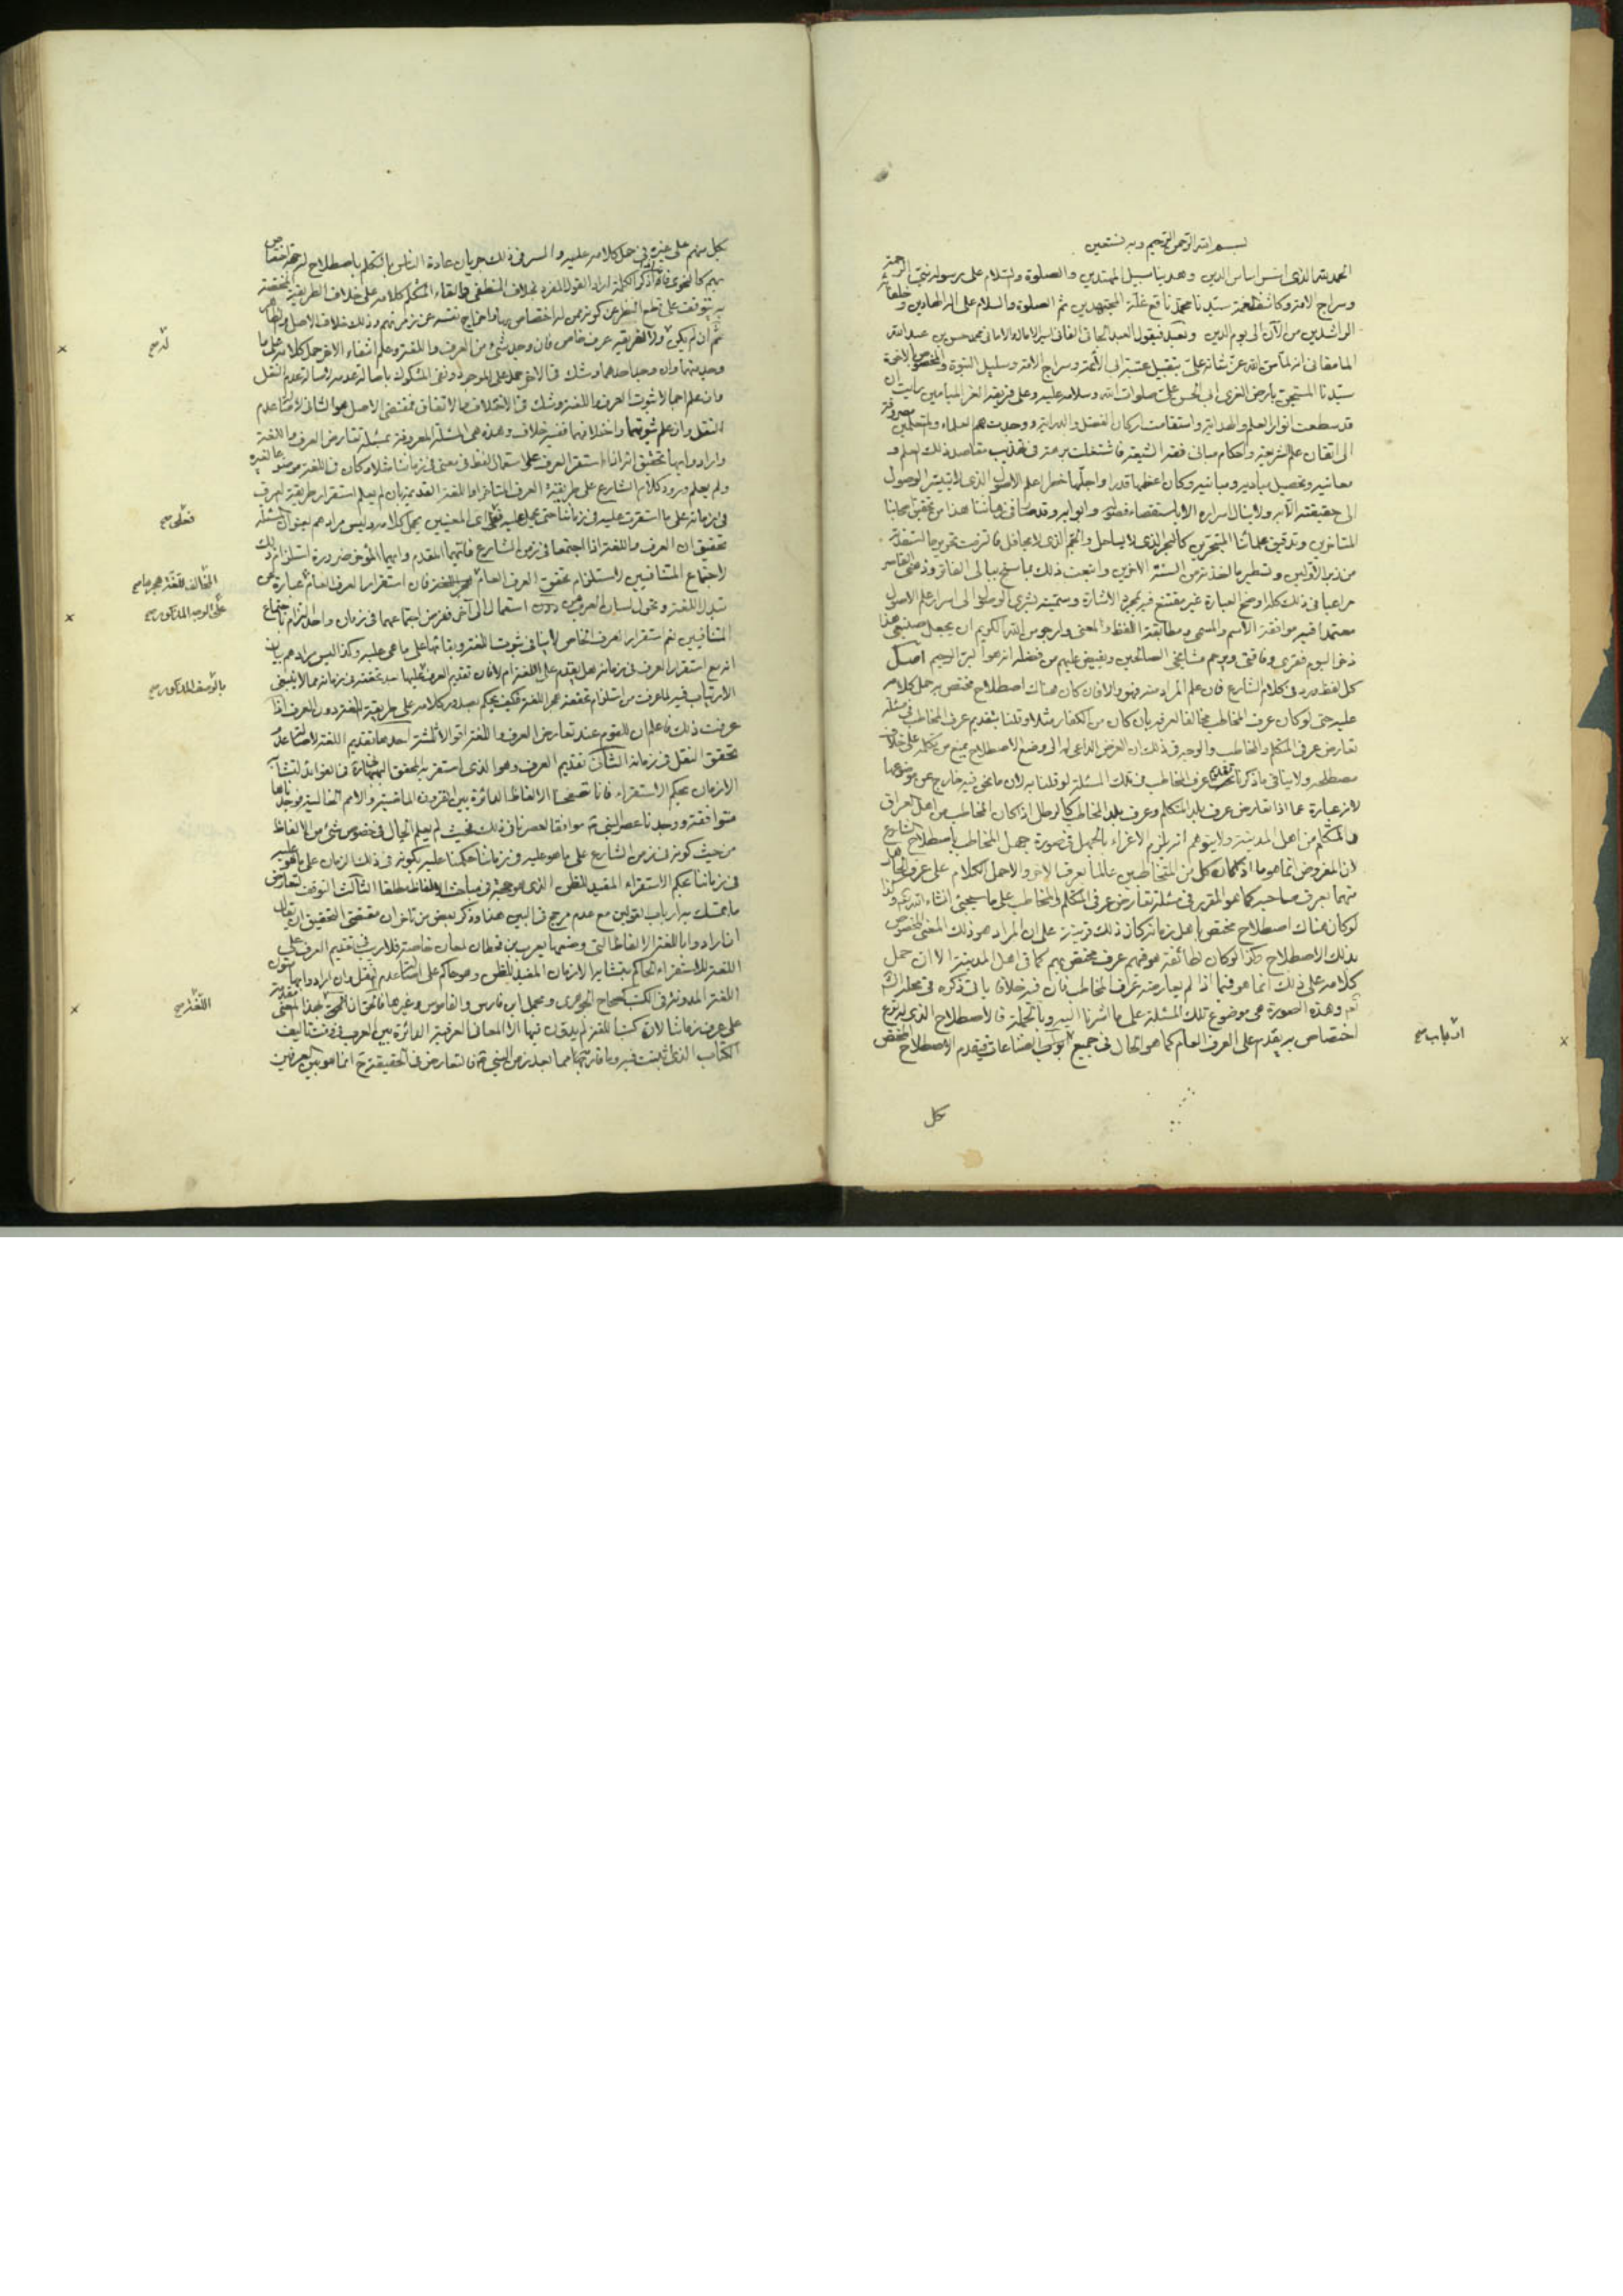 بسم الله الرحمن الرحيم وبه نستعين
الحمد لله الذى اسس اساس الدين وهدينا سبيل المهتدين والصلوة والسلام على رسوله نبى الرحمة
وسراج الامة وكاشف الغمة سيدنا محمد ناقع غلة المجتهدين ثم الصلوة والسلام على اله الهادين وخلفائه
الراشدين من الآن الى يوم الدين وبعد فيقول العبد الجانى الفانى اسير الامال والامانى محمد حسن بن عبد الله
المامقانى انه لما من الله عز شانه على بتقبيل عتبة ابى الائمة وسراج الامة وسليل النبوة والمخصوص بالاخوة
سيدنا المسجى بارض الغرى ابى الحسن على صلوات الله وسلامه عليه وعلى ذريته الغر الميامين رايت ان
قد سطعت انوار العلم والهداية واستقامت اركان الفضل والدراية ووجدت همم العلماء والمتعلمين مصروفة
الى اتقان علم الشريعة واحكام مبانى فقه الشيعة فاشتغلت برهة فى تهذيب مقاصد ذلك العلم و
معانيه وتحصيل مباديه ومبانيه وكان اعظمها قدرا واجلها خطرا علم الاصول الذى لا يتيسر الوصول
الى حقيقته الا به ولا ينال اسراره الا باستقصاء فصوله وابوابه وقد صار فى زماننا هذا من تحقيق
المتاخرين وتدقيق علمائنا المتبحرين كالبحر الذى لا يساحل فالتزمت تحرير ما استفدته
من زبر الاولين وتسطير ما اخذته من السنة الاخرين واتبعت ذلك بما سنح ببالى الفاتر وذهنى القاصر
مراعيا فى ذلك كله اوضح العبارة غير مقتنع فيه بمجرد الاشارة وسميته بشرى الوصول الى اسرار علم الاصول
معتمدا فيه موافقة الاسم والمسمى ومطابقة اللفظ والمعنى وارجو من الله الكريم ان يجعل صنيعى هذا
ذخرا ليوم فقرى وفاقتى ويرحم مشايخى الصالحين ويفيض عليهم من فضله انه هو البر الرحيم اصل
كل لفظ ورد فى كلام الشارع فان علم المراد منه فهو والا فان كان هناك اصطلاح مختص به حمل كلامه
عليه حتى لو كان عرف المخاطب مخالفا لعرفه بان كان من الكفار مثلا وقلنا بتقديم عرف المخاطب فى مسئلة
تعارض عرفى المتكلم والمخاطب والوجه فى ذلك ان الغرض الداعى له الى وضع الاصطلاح يمنع من تكلمه على خلاف
مصطلحه ولا ينافى ما ذكرنا تقديم عرف المخاطب فى تلك المسئلة لو قلنا به لان ما نحن فيه خارج عن موضوعها
لانه عبارة عما اذا تعارض عرف بلد المتكلم وعرف بلد المخاطب كالرطل اذا كان المخاطب من اهل العراق
والمتكلم من اهل المدينة ولا يتوهم انه يلزم الاغراء بالجهل فى صورة جهل المخاطب باصطلاح الشارع
لان المفروض انما هو ما اذا كان كل من المتخاطبين عالما بعرف الاخر والا حمل الكلام على عرف الجاهل
منهما بعرف صاحبه كما هو المقرر فى مسئلة تعارض عرفى المتكلم والمخاطب على ما سيجئ انشاء الله تعالى وكذا
لو كان هناك اصطلاح مختص باهل زمانه كان ذلك قرينة على ان المراد هو ذلك المعنى المخصوص
بذلك الاصطلاح وكذا لو كان لطائفة هو فيهم عرف مختص بهم كما فى اهل المدينة الا ان حمل
كلامه على ذلك انما هو فيما اذا لم يعارضه عرف المخاطب فان فيه خلافا ياتى ذكره فى محله انش
نعم وهذه الصورة هى موضوع تلك المسئلة على ما اشرنا اليه وبالجملة فالاصطلاح الذى له نوع
اختصاص به يقدم على العرف العام كما هو الحال فى جميع ابواب الصناعات فيقدم الاصطلاح المختص
ارباب صح
كل
بكل منهم على غيره فى حمل كلامه عليه والسر فى ذلك جريان عادة الناس بالتكلم باصطلاح
بهم كالنحوى فانه اذا ذكر الكلمة اراد القول المفرد بخلاف المنطقى والقاء المتكلم كلامه على خلاف الطريقة المختصة
به يتوقف على قطع النظر عن كونه ممن له اختصاص بها واخراج نفسه عن زمرتهم وذلك خلاف الاصل والظاهر
ثم ان لم يكن له ولا لفريقه عرف خاص فان وجد شئ من العرف واللغة وعلم انتفاء الاخر حمل كلامه على ما
وجد منهما وان وجد احدهما وشك فى الاخر حمل على الموجود ونفى المشكوك باصالة عدمه واصالة عدم النقل
وان علم اجمالا ثبوت العرف واللغة وشك فى الاختلاف والاتفاق فمقتضى الاصل هو الثانى لاصالة عدم
النقل وان علم ثبوتهما واختلافهما ففيه خلاف وهذه هى المسئلة المعروفة بمسئلة تعارض العرف واللغة
وارادوا بها تحقيق انه اذا استقر العرف على استعمال لفظ فى معنى فى زماننا مثلا وكان فى اللغة موضوعا لغيره
ولم يعلم ورود كلام الشارع على طريقة العرف المتاخر او اللغة القديمة بان لم يعلم استقرار طريقة العرف
فى زمانه على ما استقرت عليه فى زماننا حتى يحمل عليه فعلى اى المعنيين يحمل كلامه وليس مرادهم بعنوان المسئلة
تحقيق ان العرف واللغة اذا اجتمعا فى زمن الشارع فايهما المقدم وايهما المؤخر ضرورة استلزام ذلك
لاجتماع المتنافيين لاستلزام تحقق العرف العام هجر اللغة فان استقرار العرف العام عبارة عن
تبدل اللغة وتحول لسان العرب من استعمال الى آخر ففرض اجتماعهما فى زمان واحد التزام باجتماع
المتنافيين نعم استقرار العرف الخاص لا ينافى ثبوت اللغة وبقائها على ما هى عليه وكذا ليس مرادهم بيان
انه مع استقرار العرف فى زمانه هل يقدم على اللغة ام لا فان تقديم العرف عليها بعد تحققه فى زمانه مما لا ينبغى
الارتياب فيه لما عرفت من استلزام تحققه هجر اللغة فكيف يحكم بصدور كلامه على طريقة اللغة دون العرف اذا
عرفت ذلك فاعلم ان للقوم عند تعارض العرف واللغة اقوالا ثلثة احدها تقديم اللغة لاصالة عدم
تحقق النقل فى زمانه الثانى تقديم العرف وهو الذى استقر به المحقق البهبهانى فى الفوائد لتشابه
الازمان بحكم الاستقراء فانا تصفحنا الالفاظ الدائرة بين القرون الماضية والامم الخالية فوجدناها
متوافقة ووجدنا عصر النبى ص موافقا لعصرنا فى ذلك فحيث لم يعلم الحال فى خصوص شئ من الالفاظ
من حيث كونه فى زمن الشارع على ما هو عليه فى زماننا حكمنا عليه بكونه فى ذلك الزمان على ما هو عليه
فى زماننا بحكم الاستقراء المفيد للظن الذى هو حجة فى مباحث الالفاظ مطلقا الثالث التوقف لتعارض
ما تمسك به ارباب القولين مع عدم مرجح فى البين هذا وذكر بعض من تاخر ان مقتضى التحقيق ان يقال
ان ارادوا باللغة الالفاظ التى وضعها يعرب بن قحطان لمعان خاصة فلا ريب فى تقديم العرف على
اللغة للاستقراء الحاكم بتشابه الازمان المفيد للظن وهو حاكم على اصالة عدم النقل وان ارادوا بها متون
اللغة المدونة فى الكتب كصحاح الجوهرى ومجمل ابن فارس والقاموس وغيرها فالحق ان اللغة بهذا المعنى مقدمة
على عرف زماننا لان كتب اللغة لم يدون فيها الا المعانى العرفية الدائرة بين العرب فى وقت تاليف
الكتاب الذى اثبتت فيه وما قاربها مما بعد زمن النبى ص فالتعارض فى الحقيقة ح انما هو بين العرفين
له صح
فعلى صح
المخالف للغة هجرها صح
على الوجه المذكور صح
بالوصف المذكور صح
اللغة صح